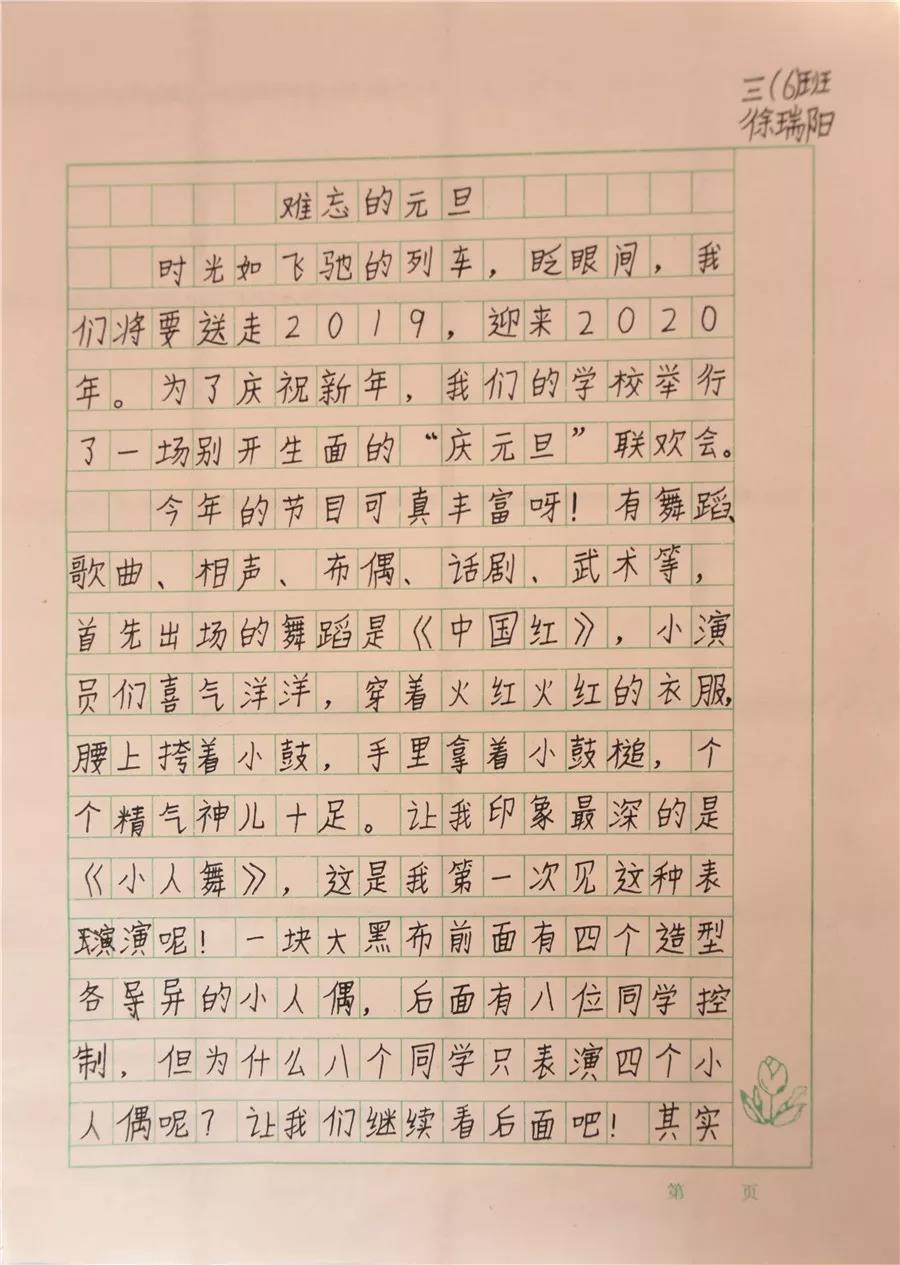 三(6)班
徐瑞阳
难忘的元旦
时光如飞驰的列车，眨眼间，我
们将要送走2019，迎来2020
年。为了庆祝新年，我们的学校举行
了一场别开生面的“庆元旦”联欢会。
今年的节目可真丰富呀！有舞蹈、
歌曲、相声、布偶、话剧、武术等，
首先出场的舞蹈是《中国红》，小演
员们喜气洋洋，穿着火红火红的衣服，
腰上挎着小鼓，手里拿着小鼓槌，个
个精气神儿十足。让我印象最深的是
《小人舞》，这是我第一次见这种表
演呢！一块大黑布前面有四个造型
各异的小人偶，后面有八位同学控
制，但为什么八个同学只表演四个小
人偶呢？让我们继续看后面吧！其实
第 页